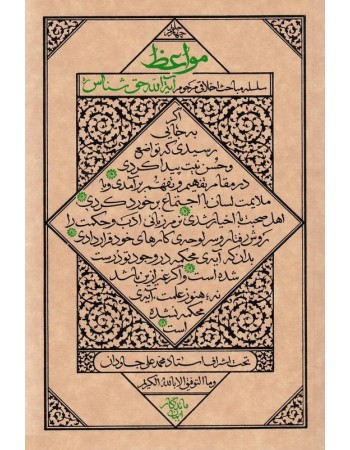 مواعظ
سلسله مباحث اخلاقی مرحوم آیة الله حق شناس
اگر
به جایی
رسیدی که تواضع
و حسن نیت پیدا کردی
در مقام تفهیم و تفهم برآمدی و با
ملایمت لسان با اجتماع برخورد کردی
اهل صحبت با اخیار شدی نرم زبانی ادب و حکمت را
روش رفتار و سرلوحه‌ی کارهای خود قرار دادی
بدان که آیه‌ی محکمه در وجود تو درست
شده است و اگر غیر از این باشد
نه؛ هنوز علمت، آیه‌ی
محکمه نشده
است
تحت اشراف استاد محمد علی جاودان
و ما التوفیق الا بالله الکریم